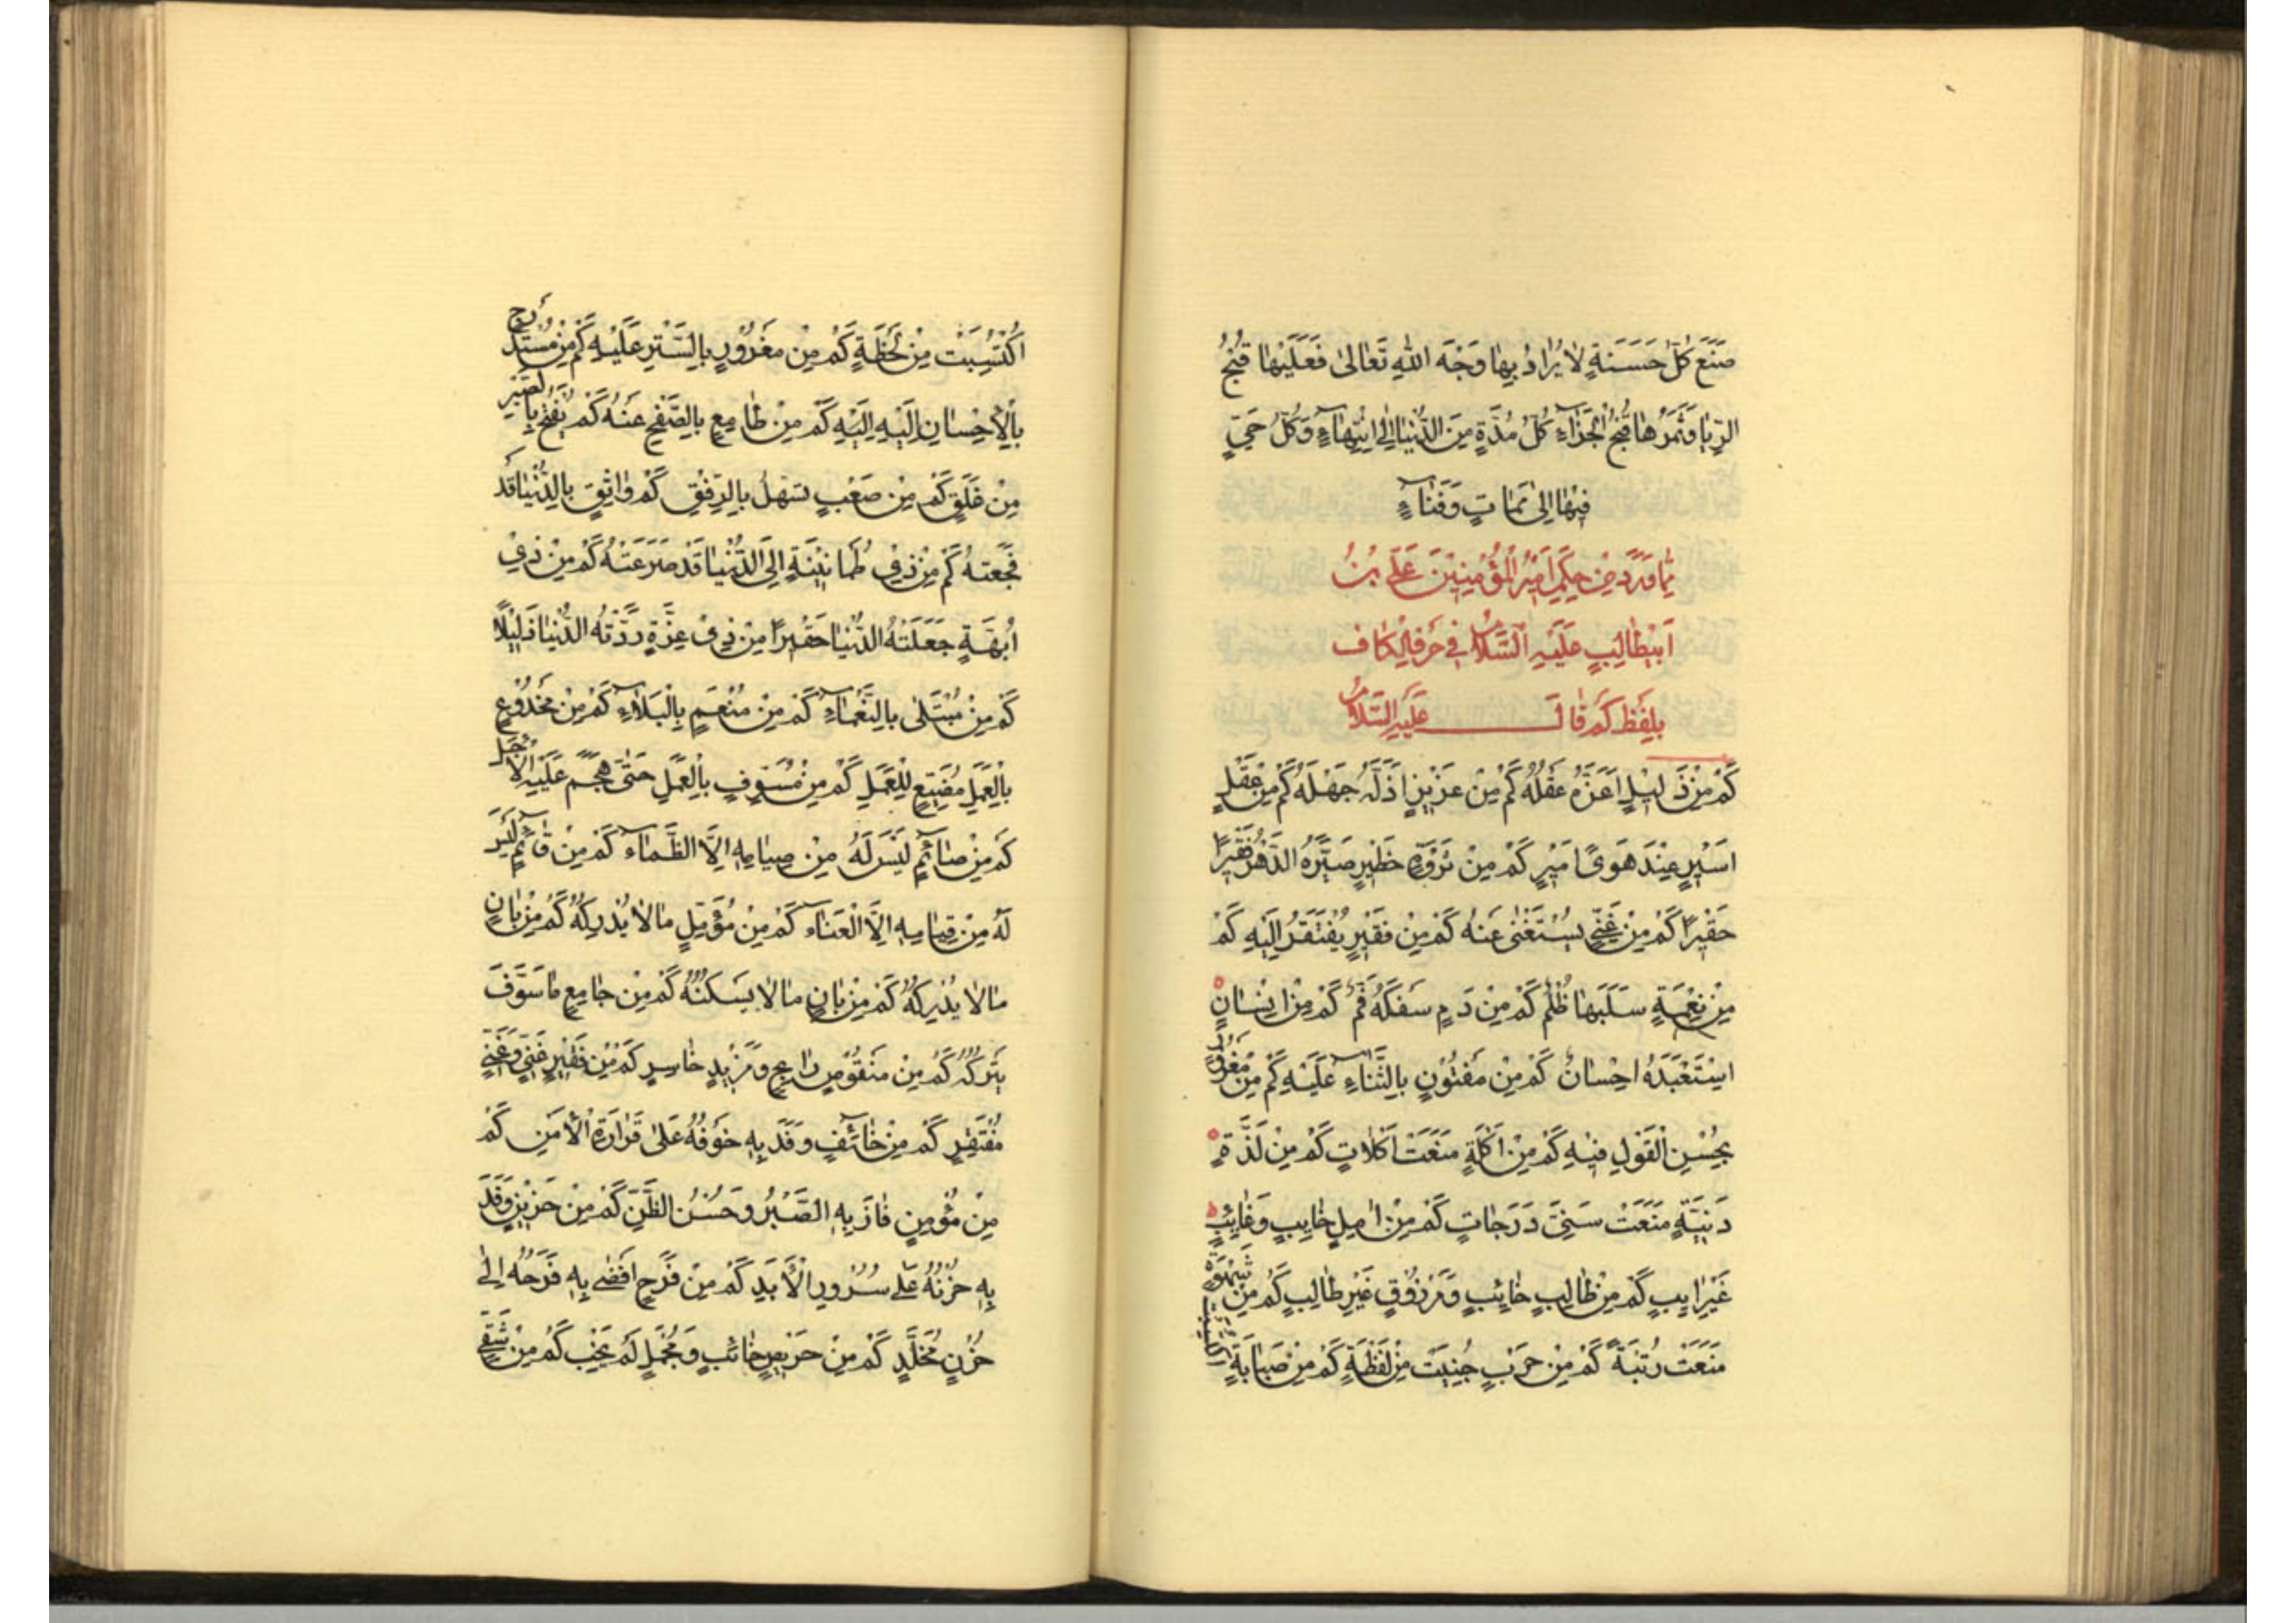 صَنَعَ كُلُّ حَسَنَةٍ لَا يُرَادُ بِهَا وَجْهَ اللهِ تَعَالىٰ فَعَلَيْهَا قُبْحُ
الرِّيَا وَثَمَرُهَا قُبْحُ الْجَزَاءِ كُلُّ مُدَّةٍ مِنَ الدُّنْيَا اِلىٰ اِنْتِهَاءٍ وَكُلُّ حَيٍّ
فِيْهَا اِلىٰ مَمَاتٍ وَفَنَاءٍ
مِمَّا وَرَدَ مِنْ حِكَمِ اَمِيْرِ الْمُؤْمِنِيْنَ عَلِي بْنُ
اَبِيْطَالِبٍ عَلَيْهِ السَّلَامُ فِي حَرْفِ الْكَاف
بِلَفْظِ كَمْ قَالَ عَلَيْهِ السَّلَامُ
كَمْ مِنْ ذَلِيْلٍ اَعَزَّهُ عَقْلُهُ كَمْ مِنْ عَزِيْزٍ اَذَلَّهُ جَهْلُهُ كَمْ مِنْ عَقْلٍ
اَسِيْرٍ عِنْدَ هَوىً اَمِيْرٍ كَمْ مِنْ ثَرْوَةٍ خَطِيْرٍ صَيَّرَهُ الدَّهْرُ فَقِيْرًا
حَقِيْرًا كَمْ مِنْ غَنِيٍّ يُسْتَغْنىٰ عَنْهُ كَمْ مِنْ فَقِيْرٍ يُفْتَقَرُ اِلَيْهِ كَمْ
مِنْ نِعْمَةٍ سَلَبَهَا ظُلْمٌ كَمْ مِنْ دَمٍ سَفَكَهُ فَمٌ كَمْ مِنْ اِنْسَانٍ
اسْتَعْبَدَهُ اِحْسَانٌ كَمْ مِنْ مَفْتُوْنٍ بِالثَّنَاءِ عَلَيْهِ كَمْ مِنْ مَغْرُوْرٍ
بِحُسْنِ الْقَوْلِ فِيْهِ كَمْ مِنْ اَكْلَةٍ مَنَعَتْ اَكَلَاتٍ كَمْ مِنْ لَذَّةٍ
دَنِيَّةٍ مَنَعَتْ سَنِيَّ دَرَجَاتٍ كَمْ مِنْ اٰمِلٍ خَايِبٍ وَغَايِبٍ
غَيْرِ اٰيِبٍ كَمْ مِنْ طَالِبٍ خَائِبٍ وَمَرْزُوْقٍ غَيْرِ طَالِبٍ كَمْ مِنْ شَهْوَةٍ
مَنَعَتْ رُتْبَةً كَمْ مِنْ حَرْبٍ جُنِيَتْ مِنْ لَفْظَةٍ كَمْ مِنْ صَبَابَةٍ
اُكْتُسِبَتْ مِنْ لَحْظَةٍ كَمْ مِنْ مَغْرُوْرٍ بِالسَّتْرِ عَلَيْهِ كَمْ مِنْ مُسْتَدْرَجٍ
بِالْاِحْسَانِ اِلَيْهِ اِلَيْهِ كَمْ مِنْ طَامِعٍ بِالصَّفْحِ عَنْهُ كَمْ يُفْتَحُ بِالصَّبْرِ
مِنْ غَلَقٍ كَمْ مِنْ صَعْبٍ تَسَهَّلُ بِالرِّفْقِ كَمْ وَاثِقٍ بِالدُّنْيَا قَدْ
فَجَعَتْهُ كَمْ مِنْ ذِيْ طُمَانِيْنَةٍ اِلَى الدُّنْيَا قَدْ صَرَعَتْهُ كَمْ مِنْ ذِيْ
اُبْهَةٍ جَعَلَتْهُ الدُّنْيَا حَقِيْرًا مِنْ ذِيْ عِزَّةٍ رَدَّتْهُ الدُّنْيَا ذَلِيْلًا
كَمْ مِنْ مُبْتَلىٰ بِالنَّعْمَاءِ كَمْ مِنْ مُنْعَمٍ بِالْبَلَاءِ كَمْ مِنْ مَخْدُوْعٍ
بِالْعَمَلِ مُضِيْعٍ لِلْعَمَلِ كَمْ مِنْ مُسَوِّفٍ بِالْعَمَلِ حَتّىٰ هَجَمَ عَلَيْهِ الْاَجَلُ
كَمْ مِنْ صَائِمٍ لَيْسَ لَهُ مِنْ صِيَامِهِ اِلَّا الظَّمَاءِ كَمْ مِنْ قَائِمٍ لَيْسَ
لَهُ مِنْ قِيَامِهِ اِلَّا الْعَنَاءِ كَمْ مِنْ مُؤَمِّلٍ مَا لَا يُدْرِكُهُ كَمْ مِنْ بَانٍ
مَا لَا يُدْرِكُهُ كَمْ مِنْ بَانٍ مَا لَا يَسْكُنُهُ كَمْ مِنْ جَامِعٍ مَا سَوْفَ
يَتْرُكُهُ كَمْ مِنْ مَنْقُوْصٍ رَابِحٍ وَمَزِيْدٍ خَاسِرٍ كَمْ مِنْ فَقِيْرٍ غَنِيٍّ وَغَنِيٍّ
مُفْتَقِرٍ كَمْ مِنْ خَائِفٍ وَفَدَ بِهِ خَوْفُهُ عَلىٰ قَرَارَةِ الْاَمْنِ كَمْ
مِنْ مُؤْمِنٍ فَازَ بِهِ الصَّبْرُ وَحُسْنُ الظَّنِّ كَمْ مِنْ حَزِيْنٍ وَفَدَ
بِهِ حُزْنُهُ عَلىٰ سُرُوْرِ الْاَبَدِ كَمْ مِنْ فَرَحٍ اَفْضٰى بِهِ فَرَحُهُ اِلىٰ
حُزْنٍ مُخَلَّدٍ كَمْ مِنْ حَرِيْصٍ خَائِبٍ وَمُجْمِلٍ لَمْ يَخِبْ كَمْ مِنْ شَقِيٍّ